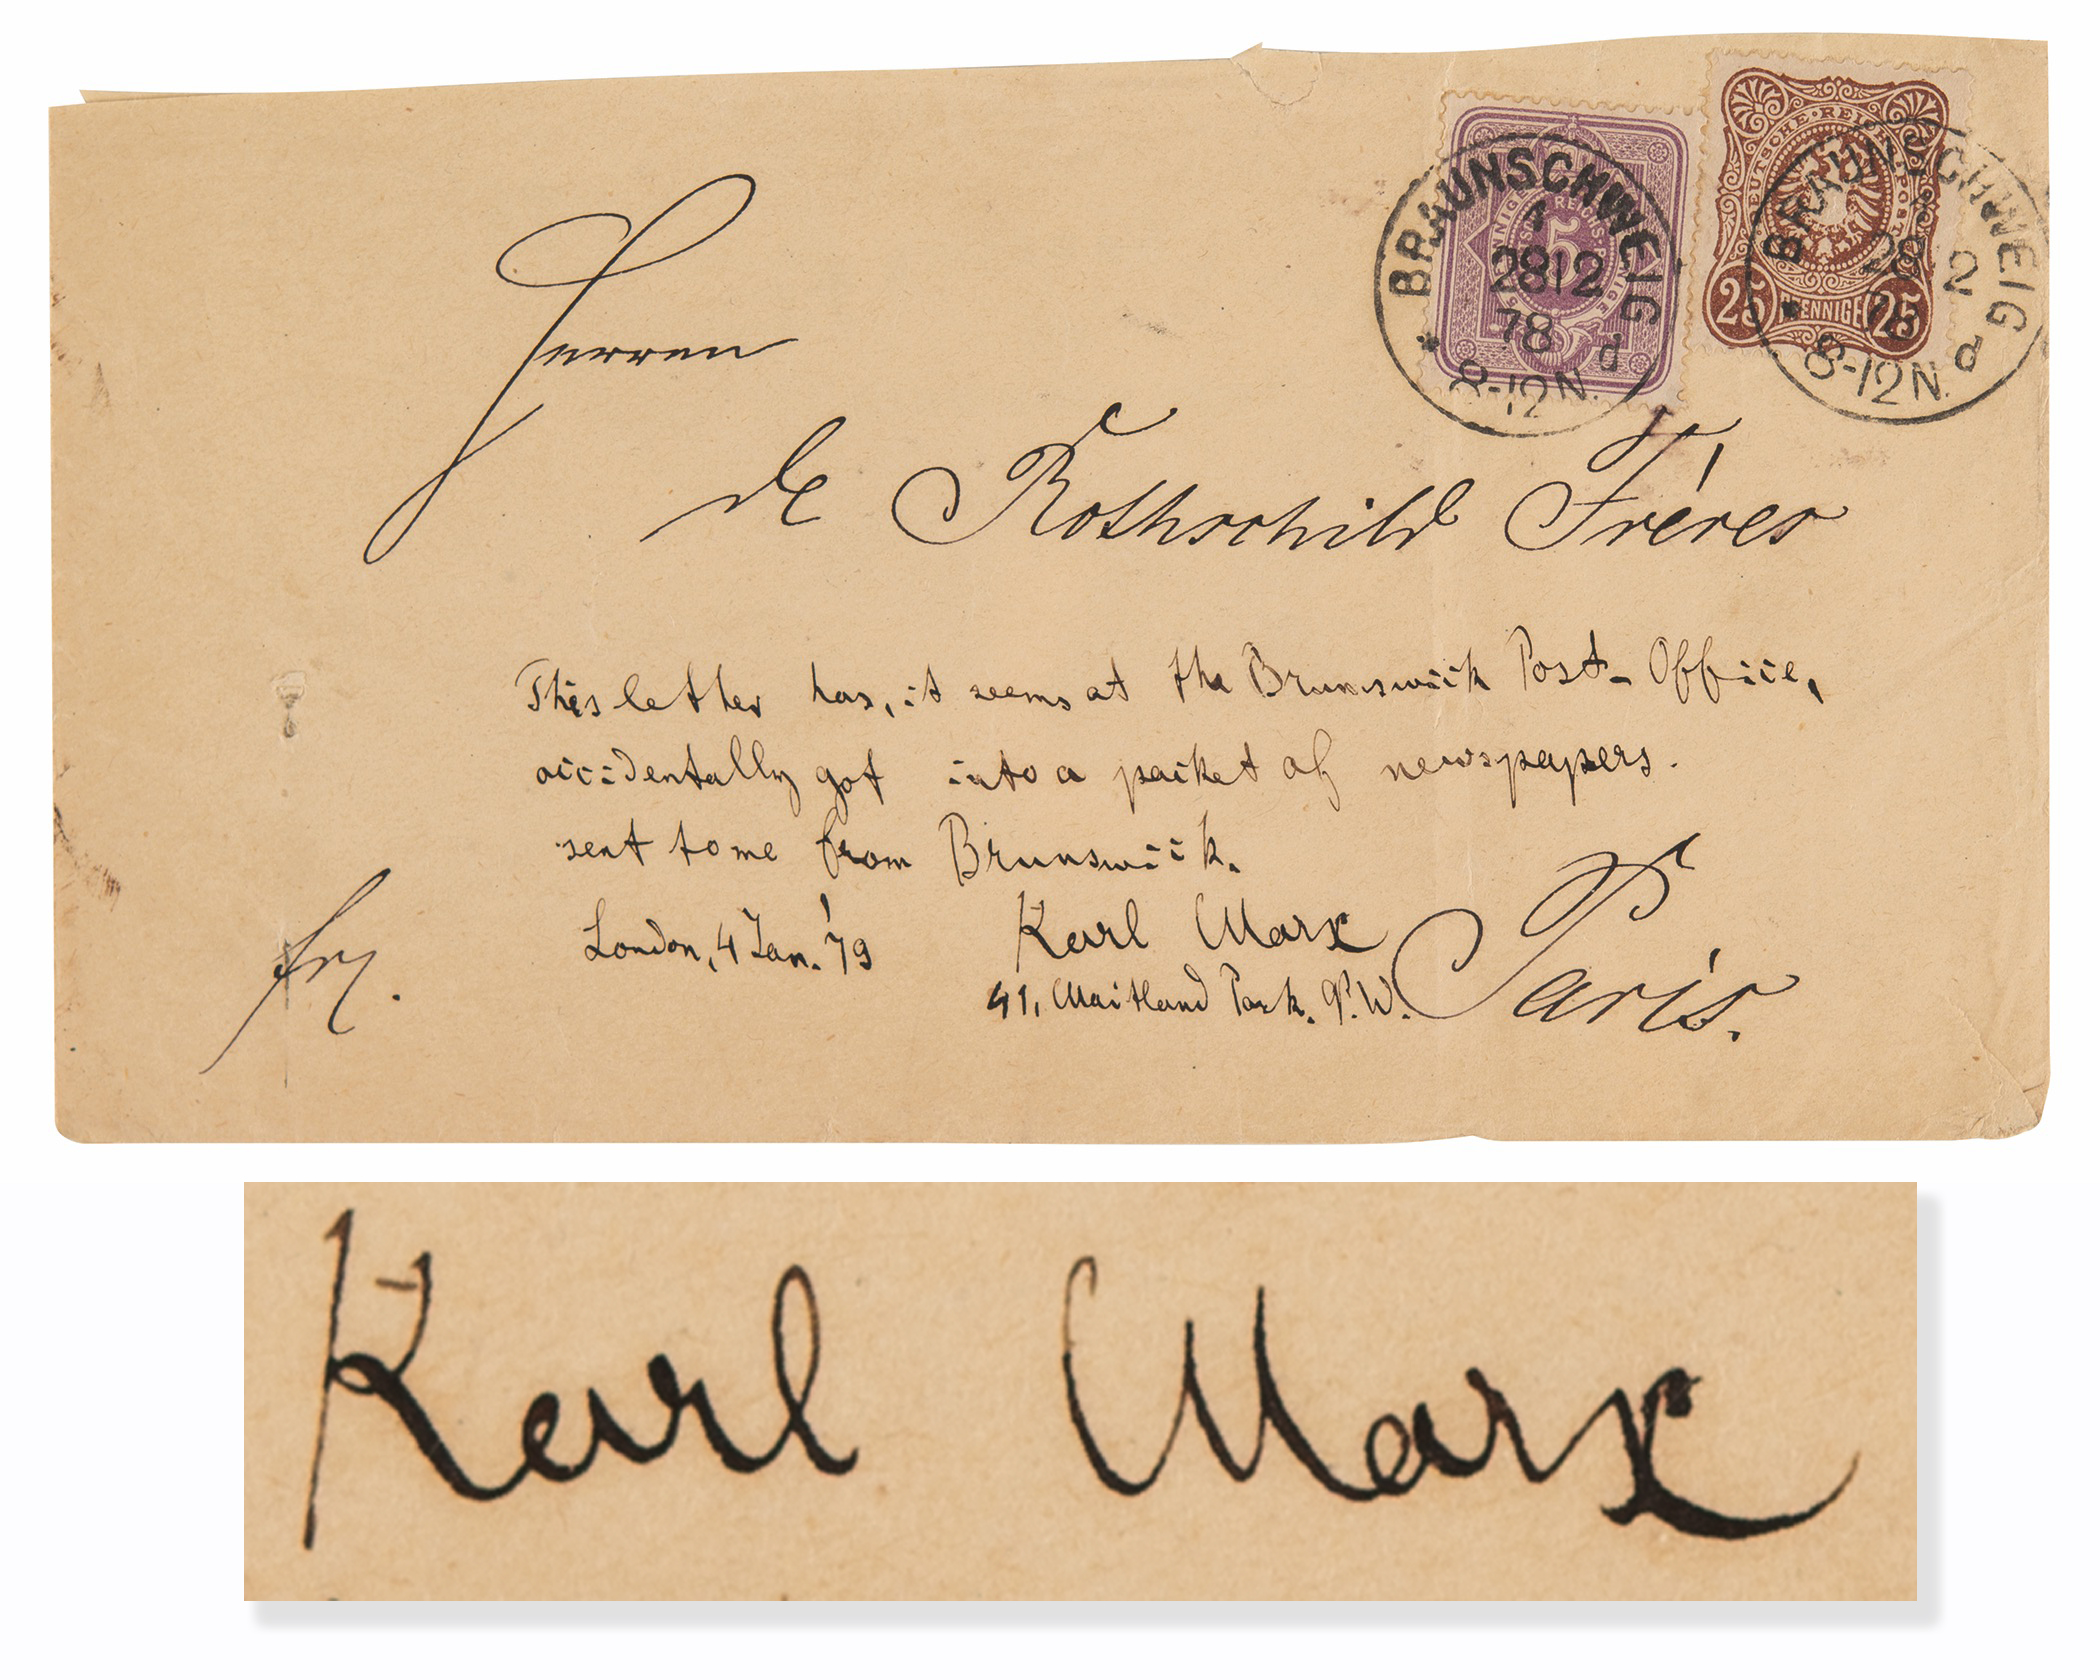 BRAUNSCHWEIG
1
2812
78
* d
8-12N.
5
DEUTSCHE·REICHS-POST
25 PFENNIGE 25
BRAUNSCHWEIG
28 2
78
* d
8-12N.
Herren
de Rothschild Fréres
This letter has, it seems at the Brunswick Post-Office,
accidentally got into a packet of newspapers.
sent to me from Brunswick.
London, 4 Jan. '79 Karl Marx
41, Maitland Park. N.W.
Paris.
frz.
Karl Marx